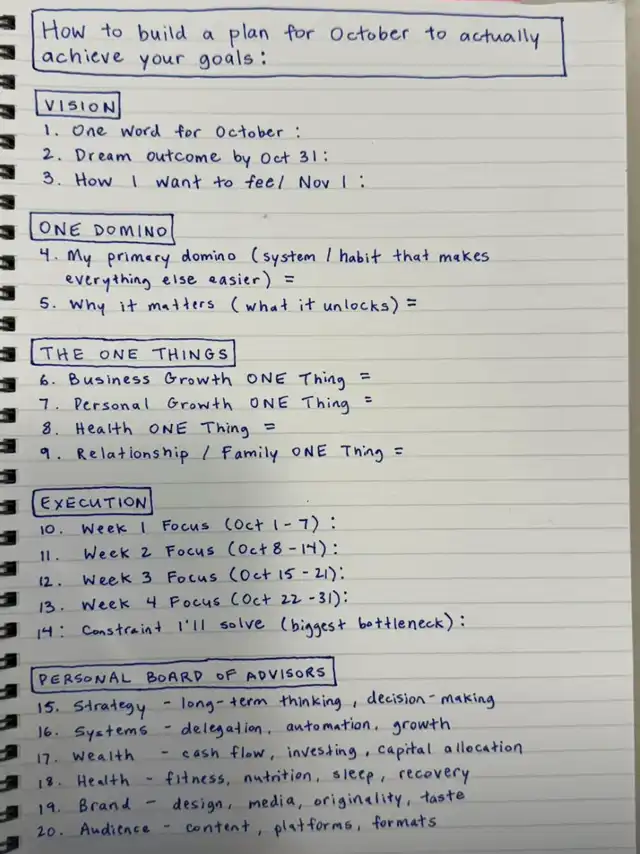 How to build a plan for October to actually
achieve your goals:
VISION
1. One word for October:
2. Dream outcome by Oct 31:
3. How I want to feel Nov 1:
ONE DOMINO
4. My primary domino (system / habit that makes
everything else easier) =
5. Why it matters (what it unlocks) =
THE ONE THINGS
6. Business Growth ONE Thing =
7. Personal Growth ONE Thing =
8. Health ONE Thing =
9. Relationship / Family ONE Thing =
EXECUTION
10. Week 1 Focus (Oct 1-7):
11. Week 2 Focus (Oct 8-14):
12. Week 3 Focus (Oct 15-21):
13. Week 4 Focus (Oct 22-31):
14: Constraint I'll solve (biggest bottleneck):
PERSONAL BOARD OF ADVISORS
15. Strategy - long-term thinking, decision-making
16. Systems - delegation, automation, growth
17. Wealth - cash flow, investing, capital allocation
18. Health - fitness, nutrition, sleep, recovery
19. Brand - design, media, originality, taste
20. Audience - content, platforms, formats